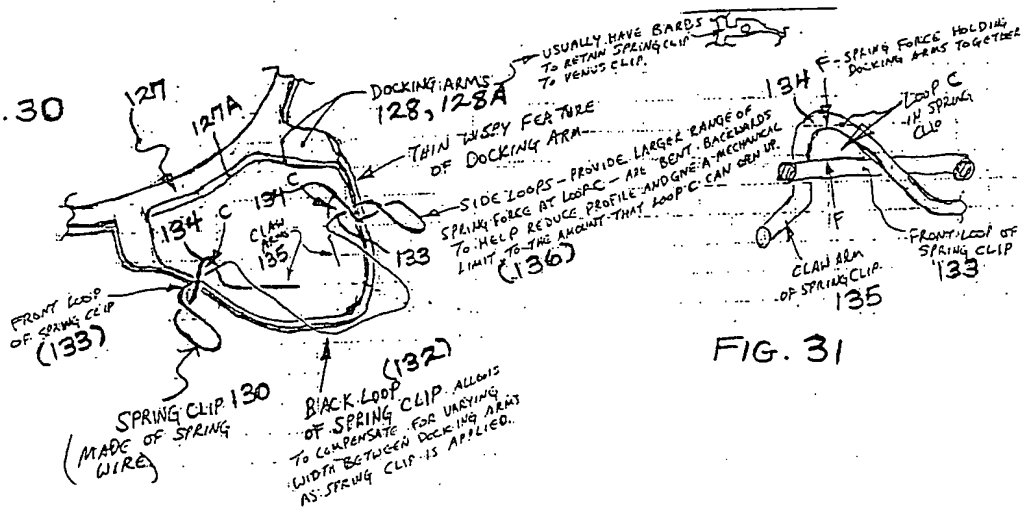 .30
127
127A
DOCKING ARMS
128, 128A
USUALLY HAVE BARBS
TO RETAIN SPRING CLIP
TO VENUS CLIP.
THIN WISPY FEATURE
OF DOCKING ARM
SIDE LOOPS - PROVIDE LARGER RANGE OF
SPRING FORCE AT LOOP C - ARE BENT BACKWARDS
TO HELP REDUCE PROFILE AND GIVE A MECHANICAL
LIMIT TO THE AMOUNT THAT LOOP C CAN OPEN UP.
(136)
134 C
134 C
CLAW
ARMS
135
133
FRONT LOOP
OF SPRING CLIP
(133)
SPRING CLIP 130
(MADE OF SPRING
WIRE)
BACK LOOP (132)
OF SPRING CLIP ALLOWS
TO COMPENSATE FOR VARYING
WIDTH BETWEEN DOCKING ARMS
AS SPRING CLIP IS APPLIED.
F - SPRING FORCE HOLDING
DOCKING ARMS TOGETHER
134
LOOP C
IN SPRING
CLIP
F
CLAW ARM
OF SPRING CLIP
135
FRONT LOOP OF
SPRING CLIP
133
FIG. 31